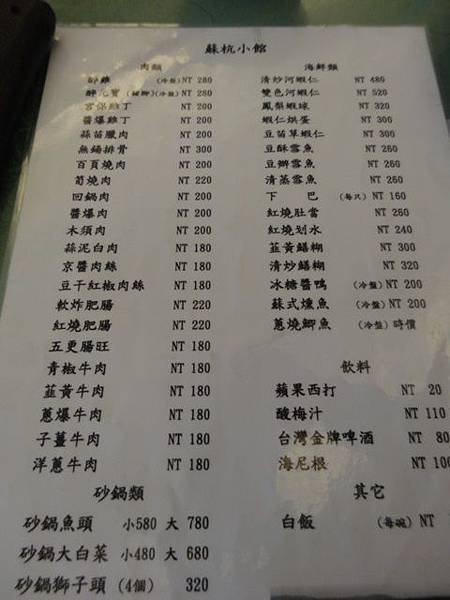 蘇杭小館
肉類
醉雞 (冷盤) NT 280
醉元寶 (豬腳)(冷盤) NT 280
宮保雞丁 NT 200
醬爆雞丁 NT 200
蒜苗臘肉 NT 200
無錫排骨 NT 200
百頁燒肉 NT 200
筍燒肉 NT 220
回鍋肉 NT 200
醬爆肉 NT 200
木須肉 NT 200
蒜泥白肉 NT 180
京醬肉絲 NT 180
豆干紅椒肉絲 NT 180
軟炸肥腸 NT 220
紅燒肥腸 NT 220
五更腸旺 NT 180
青椒牛肉 NT 180
韮黃牛肉 NT 180
蔥爆牛肉 NT 180
子薑牛肉 NT 180
洋蔥牛肉 NT 180
砂鍋類
砂鍋魚頭 小580 大 780
砂鍋大白菜 小480 大 680
砂鍋獅子頭 (4個) 320
海鮮類
清炒河蝦仁 NT 480
雙色河蝦仁 NT 520
鳳梨蝦球 NT 320
蝦仁烘蛋 NT 300
豆苗草蝦仁 NT 300
豆酥雪魚 NT 260
豆瓣雪魚 NT 260
清蒸雪魚 NT 260
下巴 (每只) NT 160
紅燒肚當 NT 260
紅燒划水 NT 240
韮黃鱔糊 NT 300
清炒鱔糊 NT 320
冰糖醬鴨 (冷盤) NT 200
蘇式燻魚 (冷盤) NT 200
蔥燒鯽魚 (冷盤) 時價
飲料
蘋果西打 NT 20
酸梅汁 NT 110
台灣金牌啤酒 NT 80
海尼根 NT 100
其它
白飯 (每碗) NT